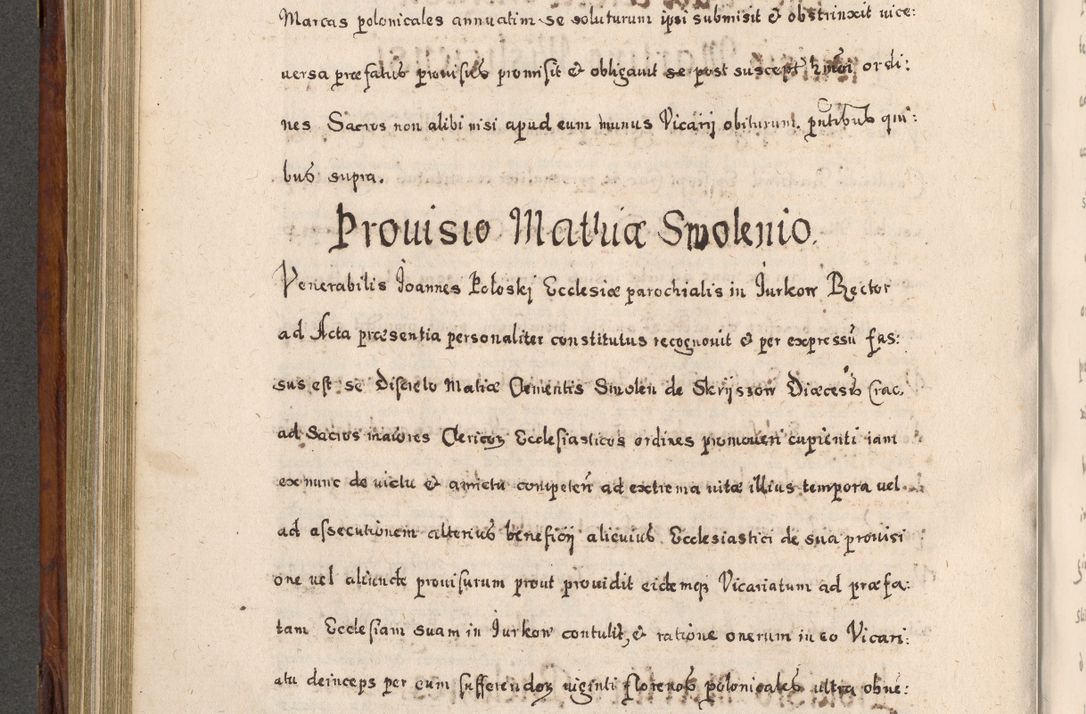 Marcas polonicales annuatim se soluturum ipsi submisit & obstrinxit uice:
uersa præfatus prouisus promisit & obligauit se post suscept hmoi ordi:
nes Sacros non alibi nisi apud eum munus Vicarij obiturum. pntibus qui:
bus supra.
Prouisio Mathiæ Smolenio.
Venerabilis Joannes Poloskj Ecclesiæ parochialis in Jurkow Rector
ad Acta præsentia personaliter constitutus recognouit & per expressũ fas:
sus est se Discreto Matiæ Clementis Smolen de Skrijszow Diæcesis Crac,
ad Sacros maiores Clericoz Ecclesiasticos ordines promoueri cupienti iam
ex nunc de uictu & amictu competeñ ad extrema uitæ illius tempora uel
ad assecutionem alterius beneficij alicuius Ecclesiastici de sua prouisi
one uel aliunde prouisurum prout prouidit eidemqz Vicariatum ad præfa:
tam Ecclesiam suam in Jurkow contulit, & ratione onerum in eo Vicari:
atu deinceps per eum sufferendoz uiginti florenos polonicales ultra obue: